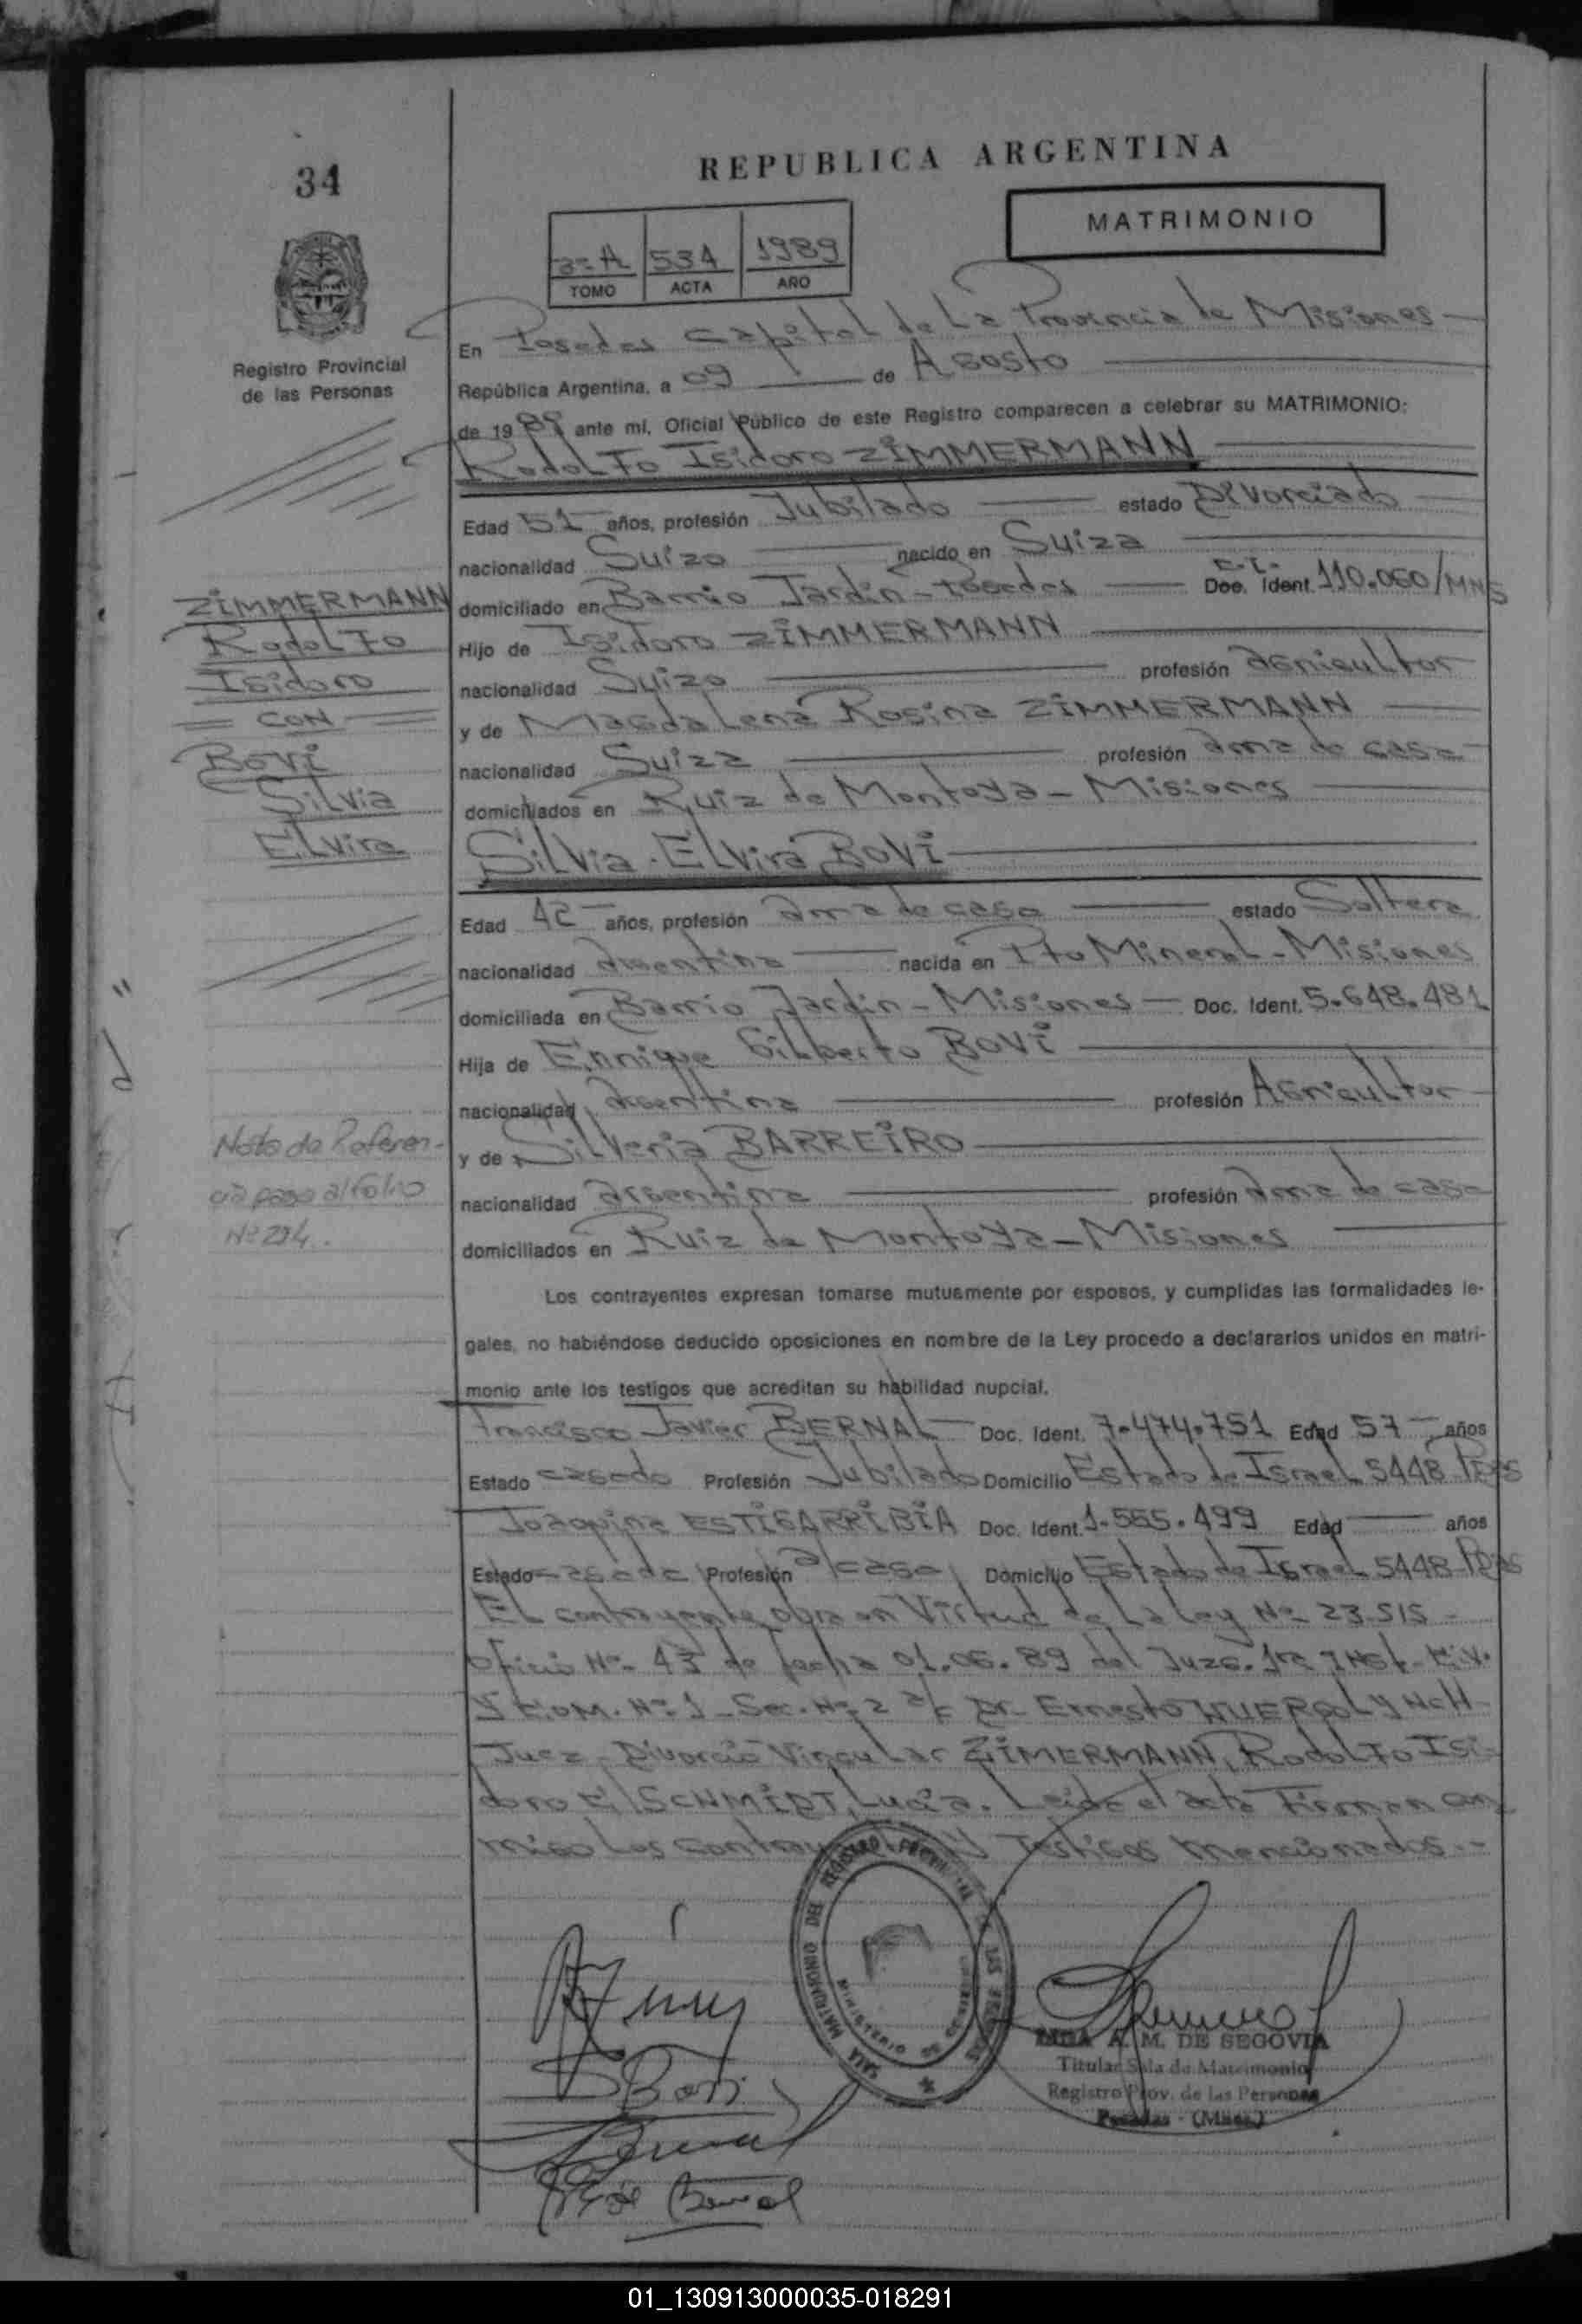 34
REPUBLICA ARGENTINA
MATRIMONIO
3º A 534 1989
TOMO ACTA AÑO
Registro Provincial
de las Personas
En Posadas Capital de La Provincia de Misiones
República Argentina, a 09 de Agosto
de 1989 ante mí, Oficial Público de este Registro comparecen a celebrar su MATRIMONIO:
Rodolfo Isidoro ZIMMERMANN
Edad 51 años, profesión Jubilado estado Divorciado
nacionalidad Suizo nacido en Suiza
domiciliado en Barrio Jardin - Posadas C.I. Doc. Ident. 110.060/MNS
Hijo de Isidoro ZIMMERMANN
nacionalidad Suizo profesión agricultor
y de Magdalena Rosina ZIMMERMANN
nacionalidad Suiza profesión ama de casa
domiciliados en Ruiz de Montoya - Misiones
Silvia Elvira BOVI
Edad 42 años, profesión ama de casa estado Soltera
nacionalidad argentina nacida en Pto Mineral - Misiones
domiciliada en Barrio Jardin - Misiones - Doc. Ident. 5.648.481
Hija de Enrique Gilberto BOVI
nacionalidad argentina profesión Agricultor
y de Silveria BARREIRO
nacionalidad argentina profesión ama de casa
domiciliados en Ruiz de Montoya - Misiones
ZIMMERMANN
Rodolfo
Isidoro
CON
BOVI
Silvia
Elvira
Nota de Referen-
cia pasa al folio
Nº 294.
Los contrayentes expresan tomarse mutuamente por esposos, y cumplidas las formalidades le-
gales, no habiéndose deducido oposiciones en nombre de la Ley procedo a declararlos unidos en matri-
monio ante los testigos que acreditan su habilidad nupcial.
Francisco Javier BERNAL - Doc. Ident. 7.474.751 Edad 57 años
Estado casado Profesión Jubilado Domicilio Estado de Israel 5448 Pdas
Joaquina ESTIGARRIBIA Doc. Ident. 1.565.499 Edad años
Estado casada Profesión a/casa Domicilio Estado de Israel 5448 - Pdas
El contrayente obra en Virtud de La Ley Nº 23.515 -
oficio Nº 43 de fecha 01.06.89 del Juzg. 1ra Inst. Civ.
y Com. Nº 1 - Sec. Nº 2 a/c Dr. Ernesto
Juez - Divorcio Vincular ZIMERMANN, Rodolfo Isi
doro C/ SCHMIDT, Lucia. Leida el acta Firman con
migo Los contrayentes y Testigos mencionados.-
SALA MATRIMONIO DEL REGISTRO PROVINCIAL DE LAS PERSONAS
MINISTERIO DE GOBIERNO
A. M. DE SEGOVIA
Titular Sala de Matrimonio
Registro Prov. de las Personas
Posadas - (Mnes.)
S Bovi
Bernal
de Bernal
01_130913000035-018291